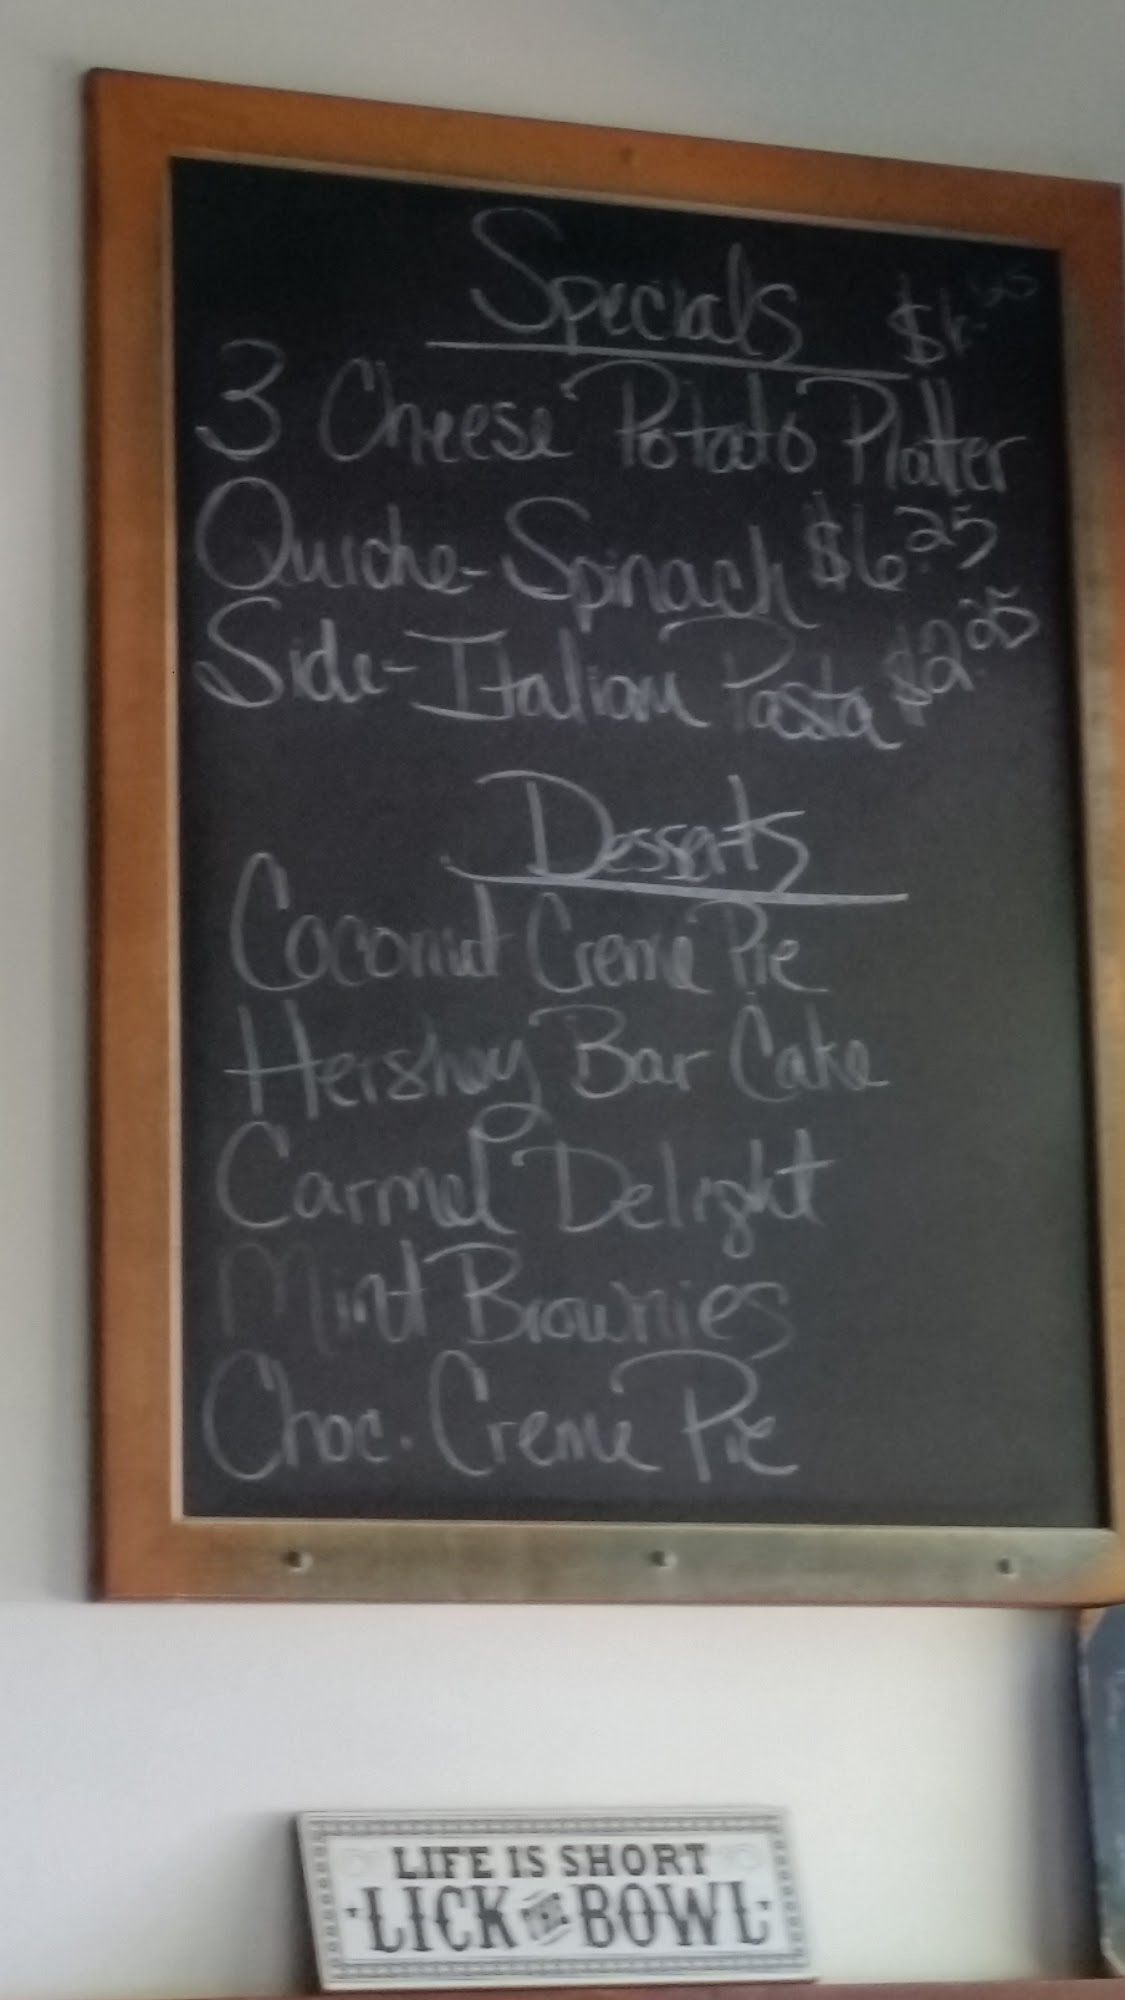 Specials
3 Cheese Potato Platter
Quiche-Spinach $6.25
Side-Italian Pasta $2.25
Desserts
Coconut Creme Pie
Hershey Bar Cake
Carmel Delight
Mint Brownies
Choc. Creme Pie
LIFE IS SHORT
LICK THE BOWL